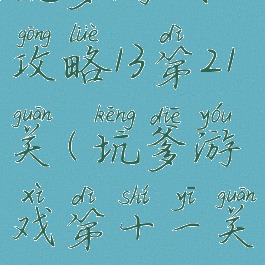 gōng lüè dì
攻略13第21
guān kēng diē yóu
关(坑爹游
xì dì shí yī guān
戏第十一关